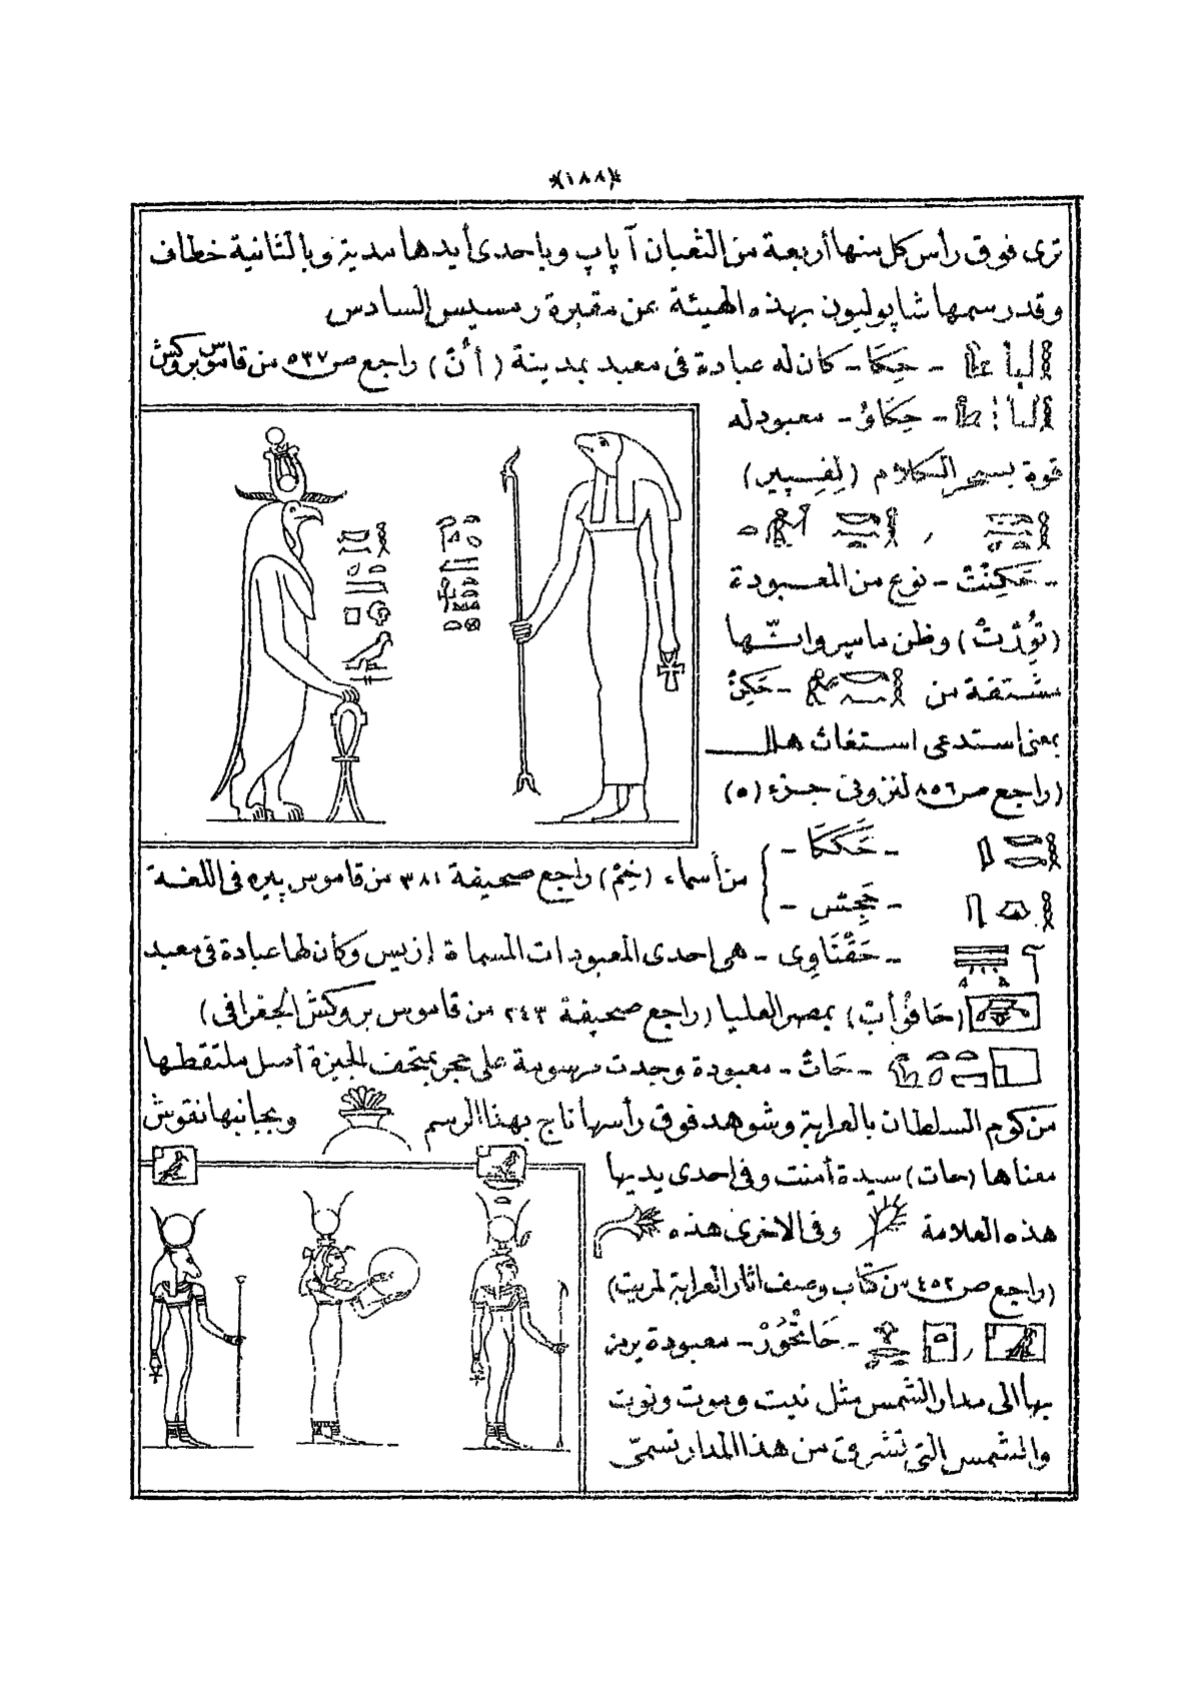 *(١٨٨)*
ترى فوق رأس كل منها أربعة من الثعبان آپاپ وباحدى أيدها مدية وبالثانية خطاف
وقد رسمها شاپوليون بهذه الهيئة عن مقبرة رمسيس السادس
- حِكَا - كان له عبادة فى معبد بمدينة (أُنْ) راجع ص ٥٣٧ من قاموس بروكش
- حِكَاوُ - معبود له
قوة بسحر الكلام (لِفِسِپير)
- حَكِنْتْ - نوع من المعبودة
(تُوِرْتْ) وظن ماسپرو انّها
مشتقة من - حَكِنْ
بمعنى استدعى استغاث هلل
(راجع ص ٨٥٦ لنزونى جزء (٥)
- حَكَكَا -
من أسماء (خِمْ) راجع صحيفة ٣٨١ من قاموس پيره فى اللغة
- حَجِسْ -
- حَقْنَاوِى - هى احدى المعبودات المسماة إزيس وكأن لها عبادة فى معبد
(حَافُواْتْ) بمصر العليا (راجع صحيفة ٢٤٣ من قاموس بروكش الجغرافى)
- حَاتْ - معبودة وجدت مرسومة على حجر بمتحف الجيزة أصل ملتقطها
من كوم السلطان بالعرابة وشوهد فوق رأسها تاج بهذا الرسم وبجانبها نقوش
معناها (حات) سيدة أمنت وفى إحدى يديها
هذه العلامة وفى الاخرى هذه
(راجع ص ٤٥٢ من كتاب وصف اثار العرابة لمريت)
- حَاتْحُورْ - معبودة يرمز
بها الى مدار الشمس مثل نيت وموت ونوت
والشمس التى تشرق من هذا المدار تسمّى